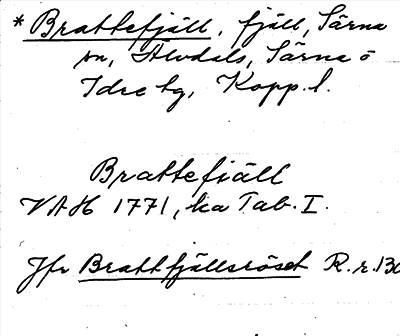 * Brattefjäll, fjäll, Särna
sn, Älvdals, Särna o
Idre tg, Kopp. l.
Brattefiäll
VAH 1771, ka Tab. I.
Jfr Brattfjällsröset R.r. 130